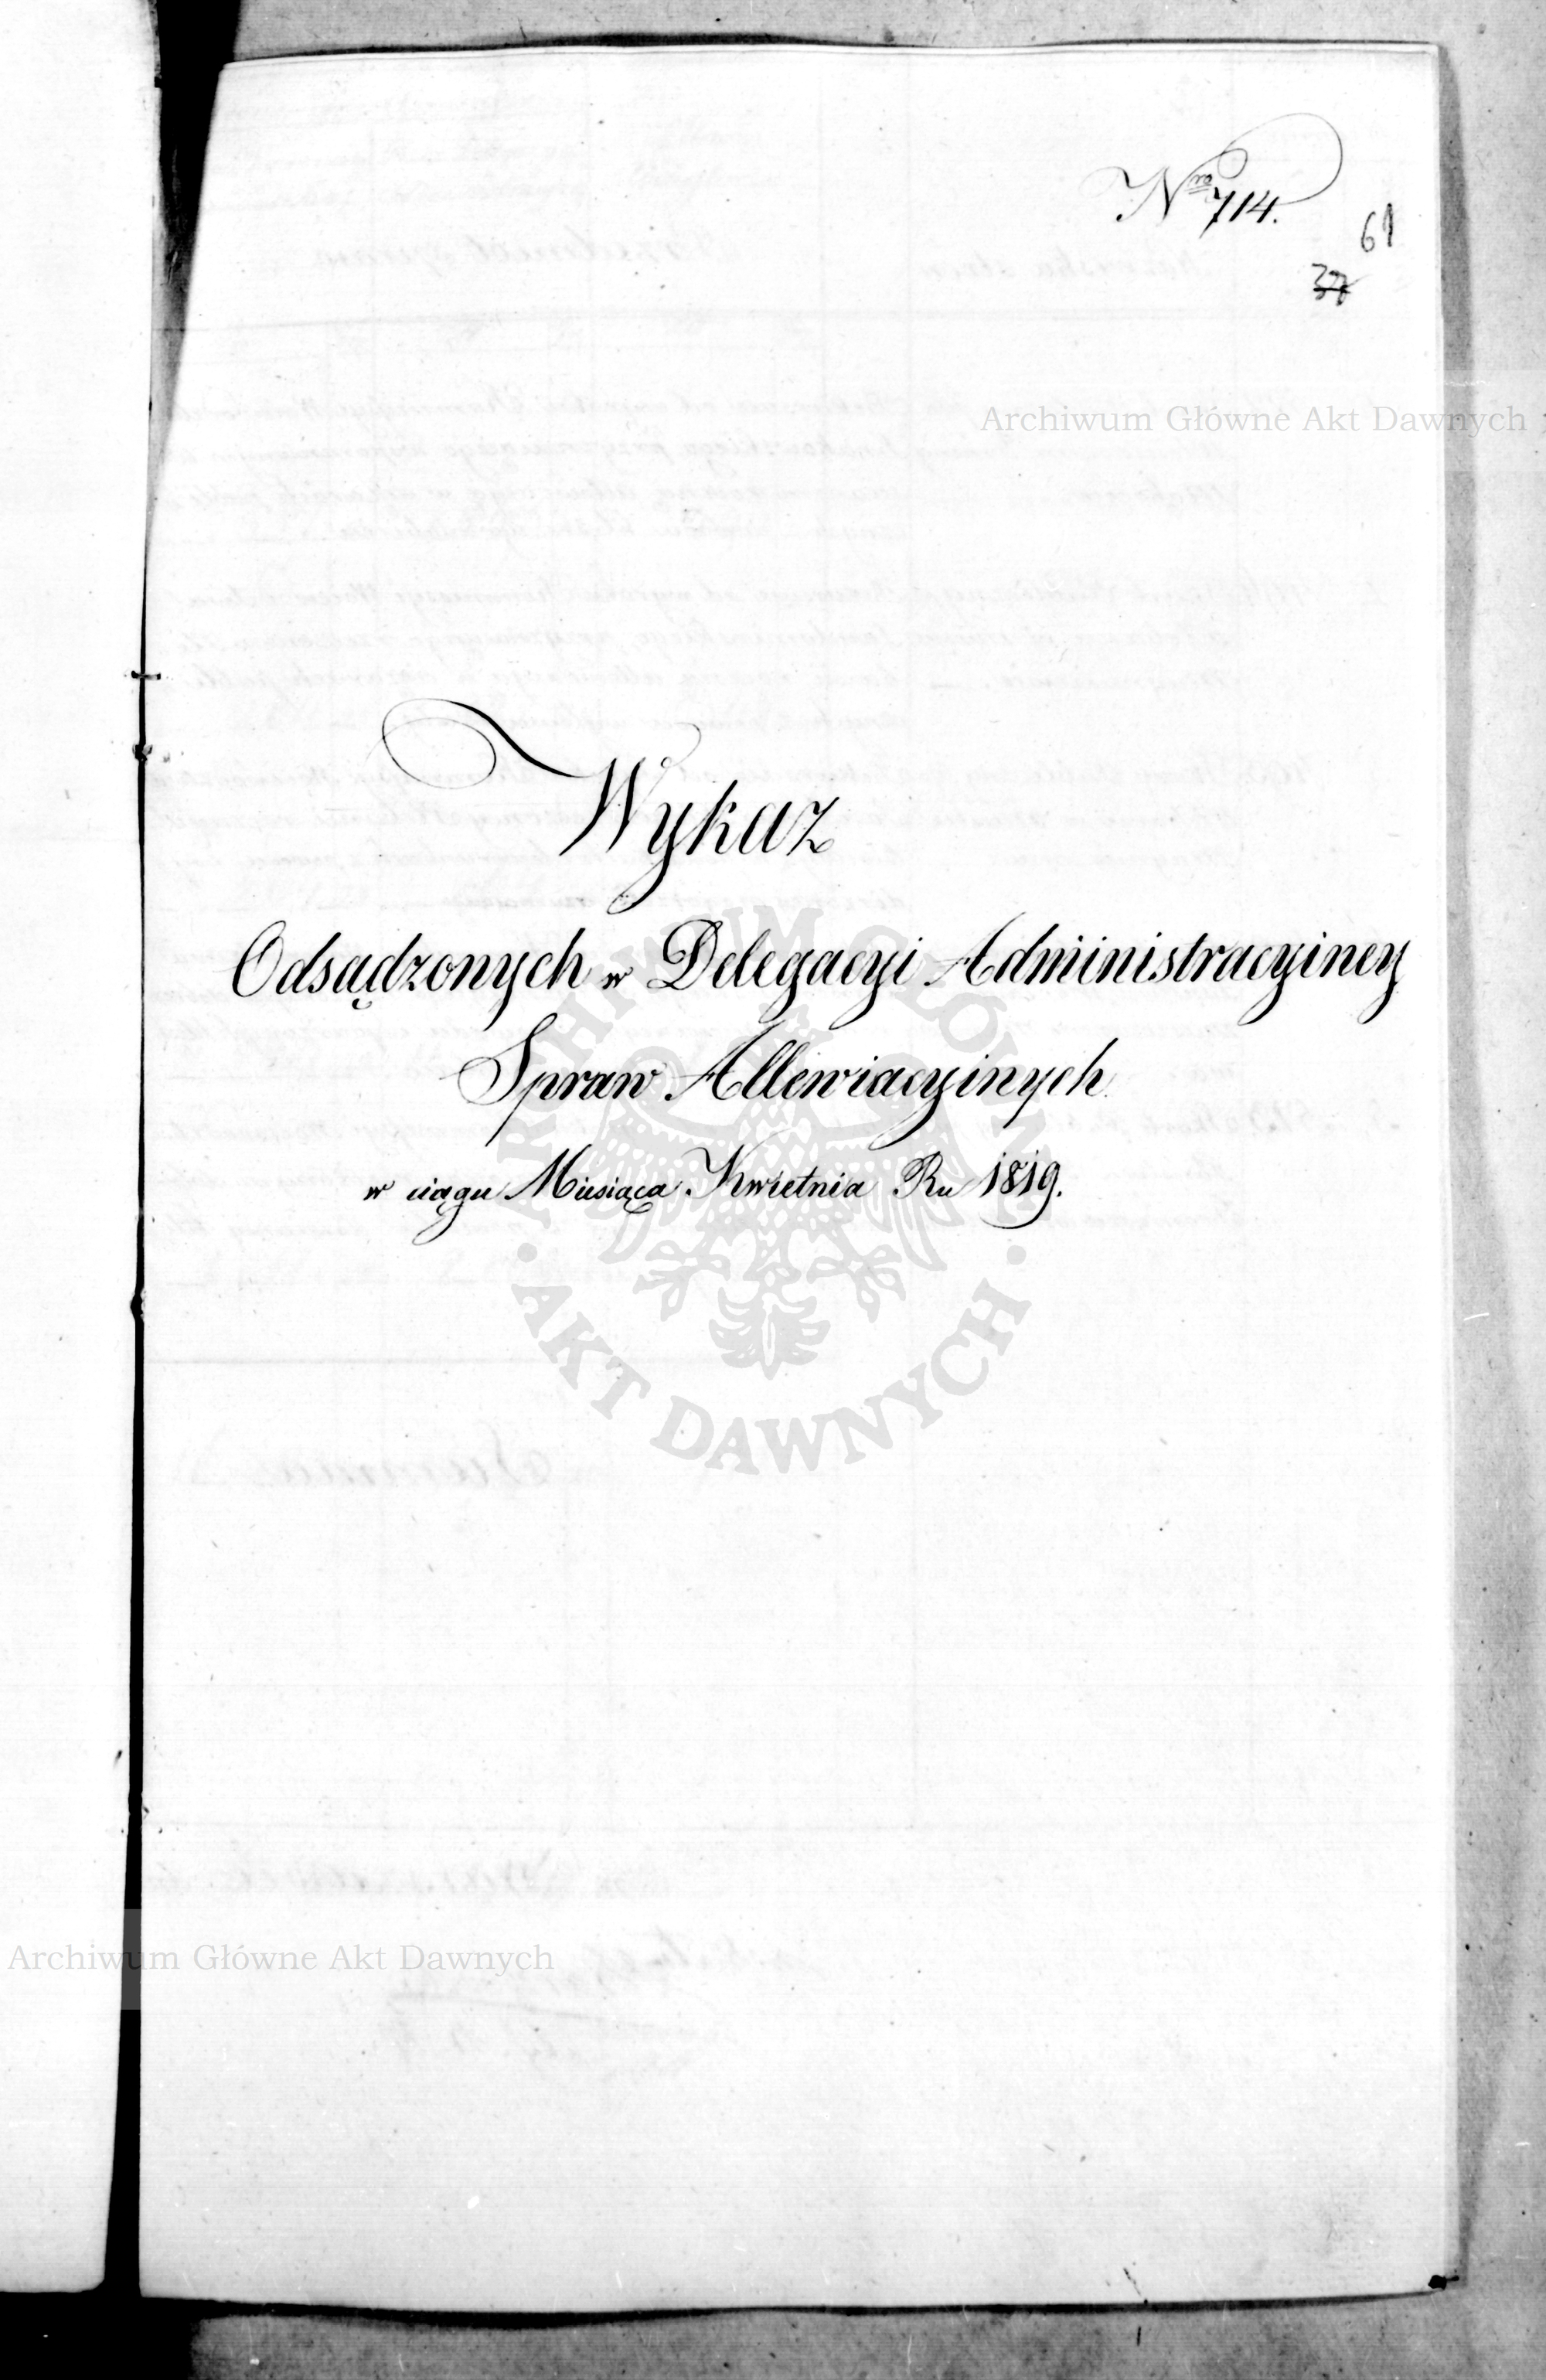 Nro 714.
61
37
Archiwum Główne Akt Dawnych
Wykaz
Odsądzonych w Delegacyi Administracyiney
Spraw Allewiacyinych
w ciągu Miesiąca Kwietnia Ru 1819.
ARCHIWUM GŁÓWNE
AKT DAWNYCH
Archiwum Główne Akt Dawnych